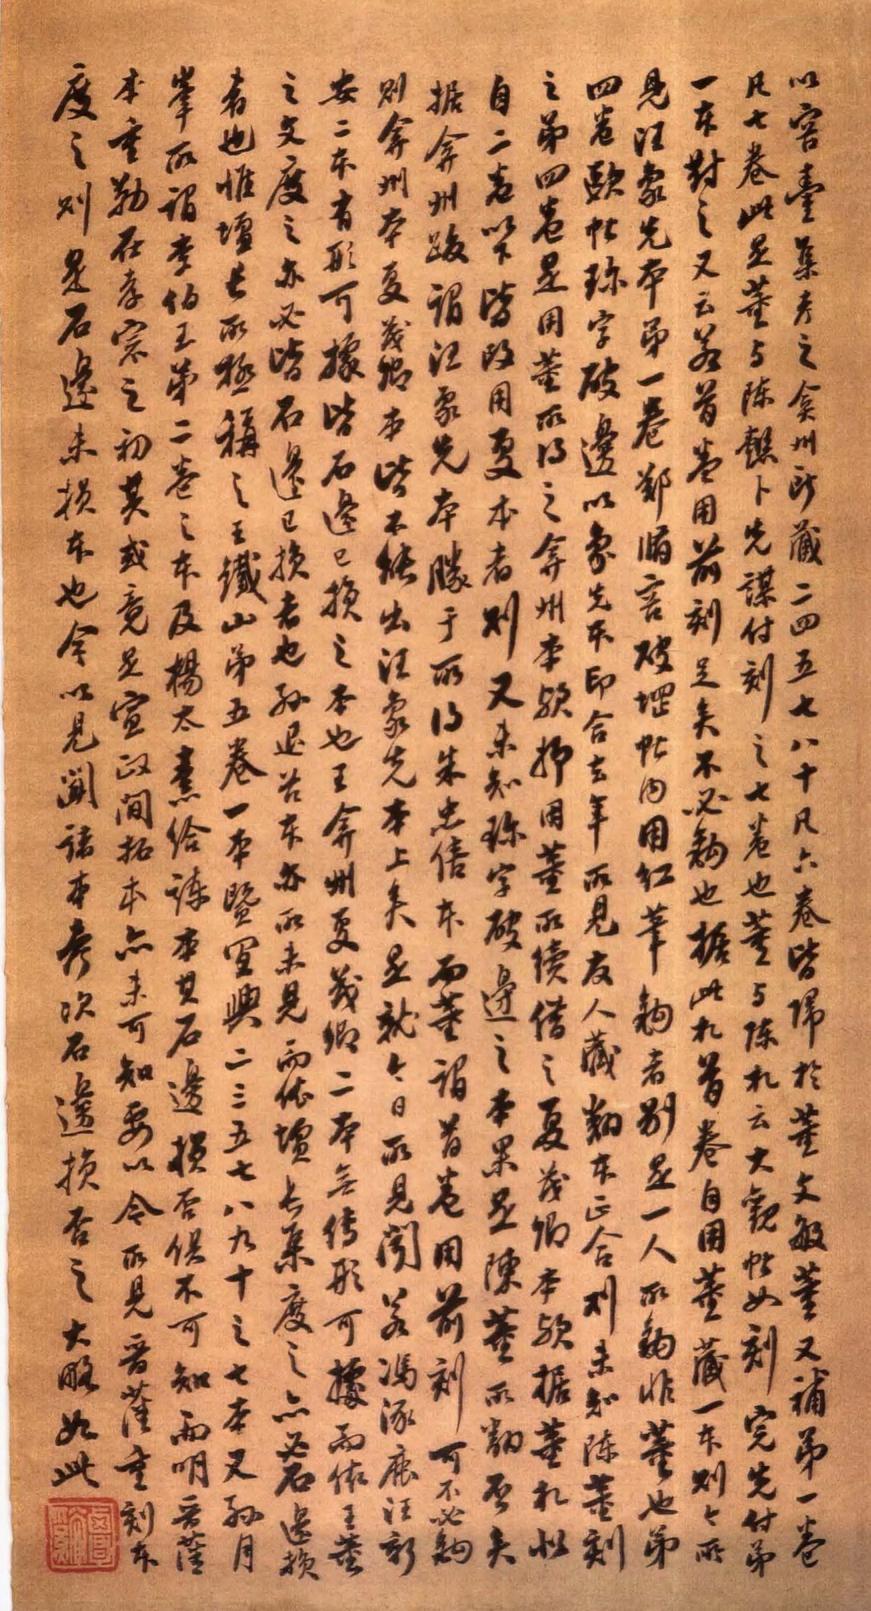 以容臺集考之弇州所藏二四五七八十凡六卷皆歸於董文敏董又補第一卷
凡七卷此是董与陈懿卜先謀付刻之七卷也董与陈札云大觀帖如刻完先付弟
一本對之又云若首卷用前刻足矣不必鉤也据此札首卷自用董藏一本則今所
見汪象先本第一卷鄭脩容破堽帖内用红筆鉤者别是一人所鉤非董也第
四卷歐帖珎字破邊以象先本印合去年所見友人藏翻本正合則未知陈董刻
之第四卷是用董所得之弇州本欤抑用董所續借之夏茂卿本欤据董札似
自二卷以下皆改用夏本者則又未知珎字破邊之本果是陳董所翻否矣
据弇州跋謂汪象先本勝于所得朱忠僖本而董謂首卷用前刻可不必鉤
則弇州本夏茂卿本皆不能出汪象先本上矣是就今日所見闻若馮涿鹿汪新
安二本有形可據皆石邊已损之本也王弇州夏茂卿二本無傳形可據而依王董
之文度之亦必皆石邊已损者也孙退谷本亦所未見而依壇长集度之亦必石邊损
者也惟壇長所極稱之王鐵山第五卷一本暨宜興二三五七八九十之七本又孙月
峯所謂李伯玉第二卷之本及楊太素给諫本其石邊损否俱不可知而明晋藩
本重勒在孝宗之初其或竟是宣政間拓本亦未可知要以今所見晋藩重刻本
度之則是石邊未损本也今以見聞諸本考次石邊损否之大略如此